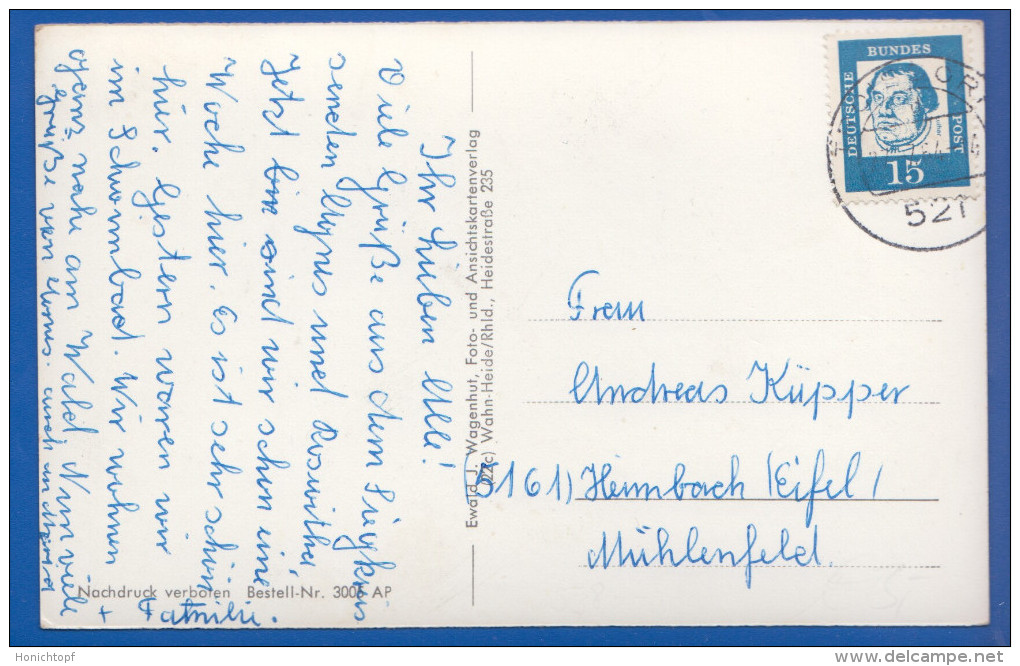 Ihr lieben Alle!
Viele Grüße aus dem Siegkreis
senden Agnes und Roswitha,
Jetzt bin sind wir schon eine
Woche hier. Es ist sehr schön
hier. Gestern waren wir
im Schwimmbad. Wir wohnen
ganz nahe am Wald. Nun viele
Grüße von Agnes auch
+ Familie.
Nachdruck verboten Bestell-Nr. 3006 AP
Ewald J. Wagenhut, Foto- und Ansichtskartenverlag
(22c) Wahn-Heide/Rhld., Heidestraße 235
DEUTSCHE
BUNDES
POST
15
521
Frau
Andreas Küpper
(5161) Heimbach /Eifel/
Mühlenfeld.
Honichtopf